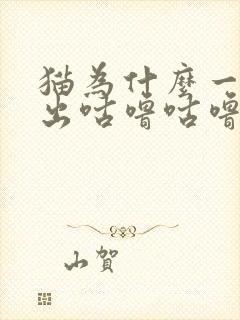 猫為什麼一
出咕嚕咕嚕
山賀